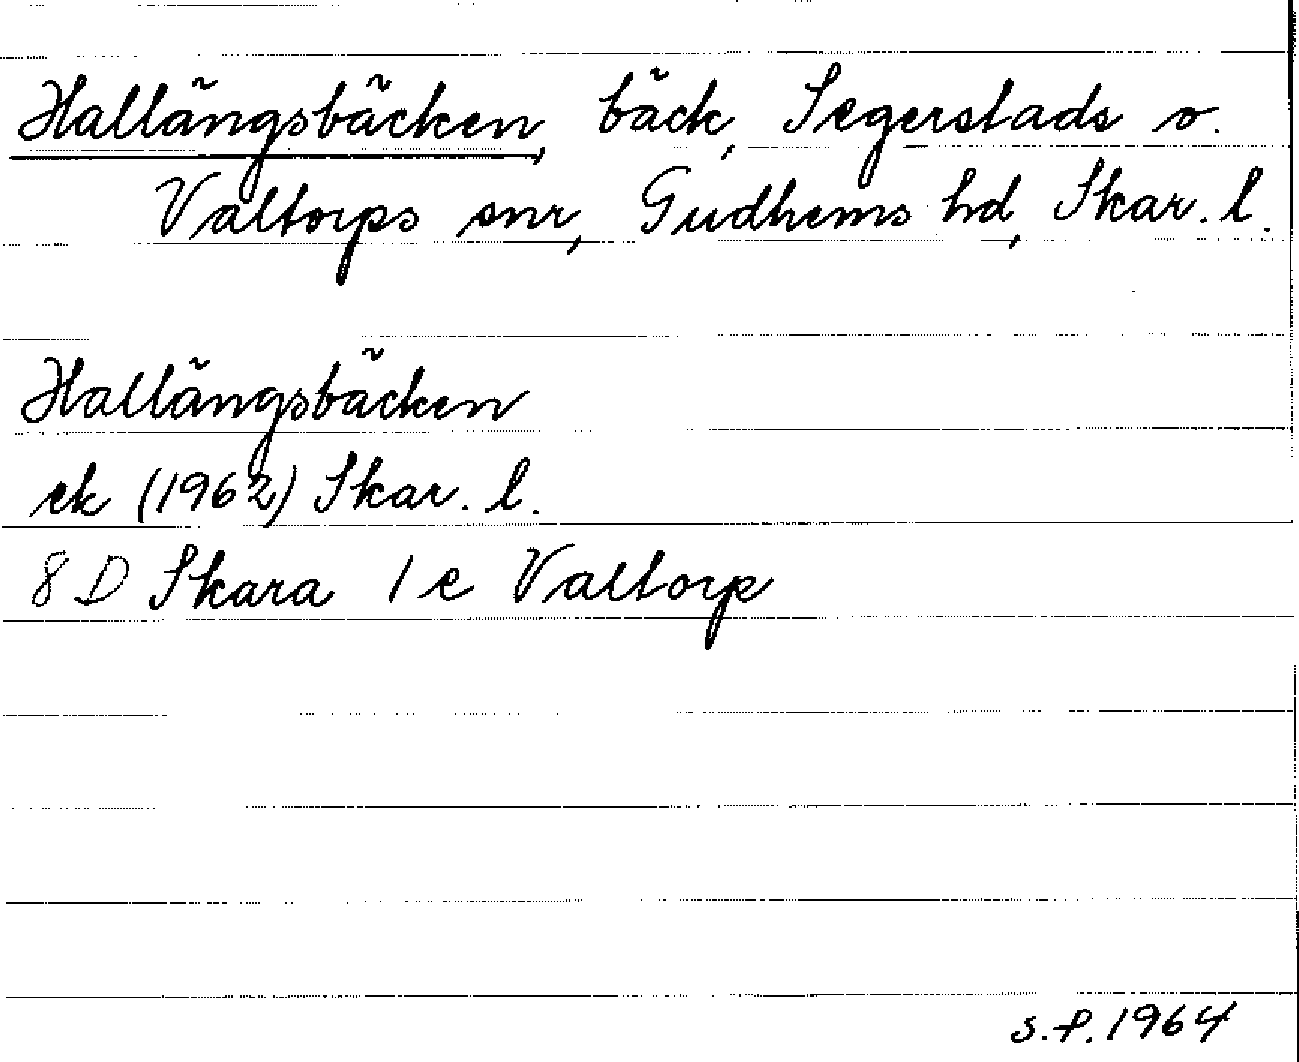 Hallängsbäcken, bäck, Segerstads o.
Valtorps snr, Gudhems hd, Skar. l.
Hallängsbäcken
ek (1962) Skar. l.
8 D Skara 1 e Valtorp
s.f. 1964